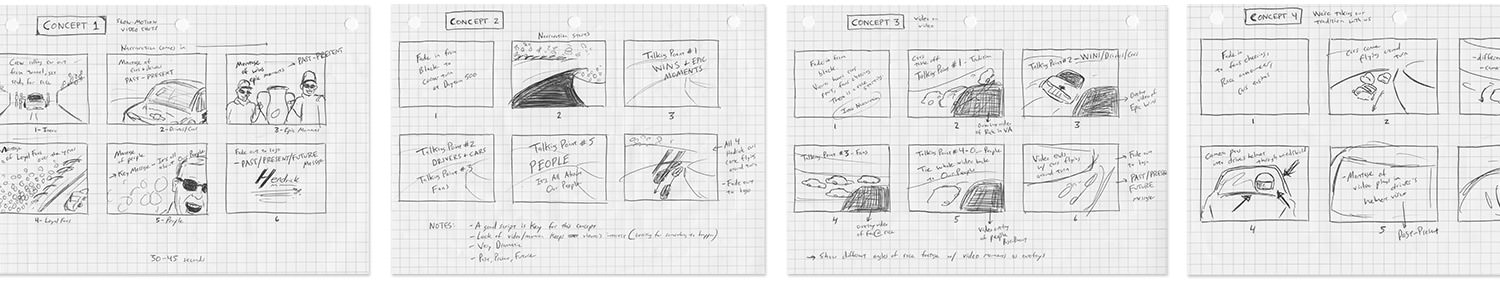 CONCEPT 1
SLOW-MOTION
VIDEO SHOTS
Narration comes in
Crew rolling car out
from tunnel, set
side for race
1-Intro
Montage of
Cars + drivers
PAST-PRESENT
2-Drivers/Cars
Montage of wins
epic moments
PAST-PRESENT
3-Epic Moments
Montage
of Loyal Fans
over the years
4-Loyal Fans
Montage
of people
Key Message
It's all
about
People
5-People
Fade out to logo
-PAST/PRESENT/FUTURE
Message
Hendrick
6
30-45 seconds
CONCEPT 2
Narration starts
Fade in from
Black to
corner turn
at Daytona 500
1
2
Talking Point #1
WINS + EPIC
MOMENTS
3
Talking Point #2
DRIVERS + CARS
Talking Point #3
Fans
4
Talking Point #5
PEOPLE
It's All About
Our People
5
All 4
Hendrick cars
come flying
around turn
-Fade out
to logo
6
NOTES:
- A good script is Key for this concept
- Lack of video/motion keeps viewers interest (waiting for something to happen)
- Very Dramatic
- Past, Present, Future
CONCEPT 3
video on
video
Fade in from
black
1
Cars
take off
Talking Point #1 - Tradition
2
Overlay video
of Rick in VA
Talking Point #2-WINS/Drivers/Cars
3
Overlay
video of
Epic Win
Talking Point #3 - Fans
4
Overlay video
of fans @ race
Talking Point #4 - Our
People
The whole video take
to Our People
5
Video overlay
of people
Video ends
w/ cars flying
around turn
6
Fade out
to logo
PAST/PRESENT
FUTURE
message
→ Show different angles of race footage w/ video moments as overlays
CONCEPT 4
We're taking our
tradition with us
Fade in
to fans cheering,
Race announcers,
cars exhaust
1
Cars come
flying around
turn
2
-different
Camera pans
into drivers helmet
through windshield
4
-Montage of
video plays in
driver's
helmet visor
5
Past-Present